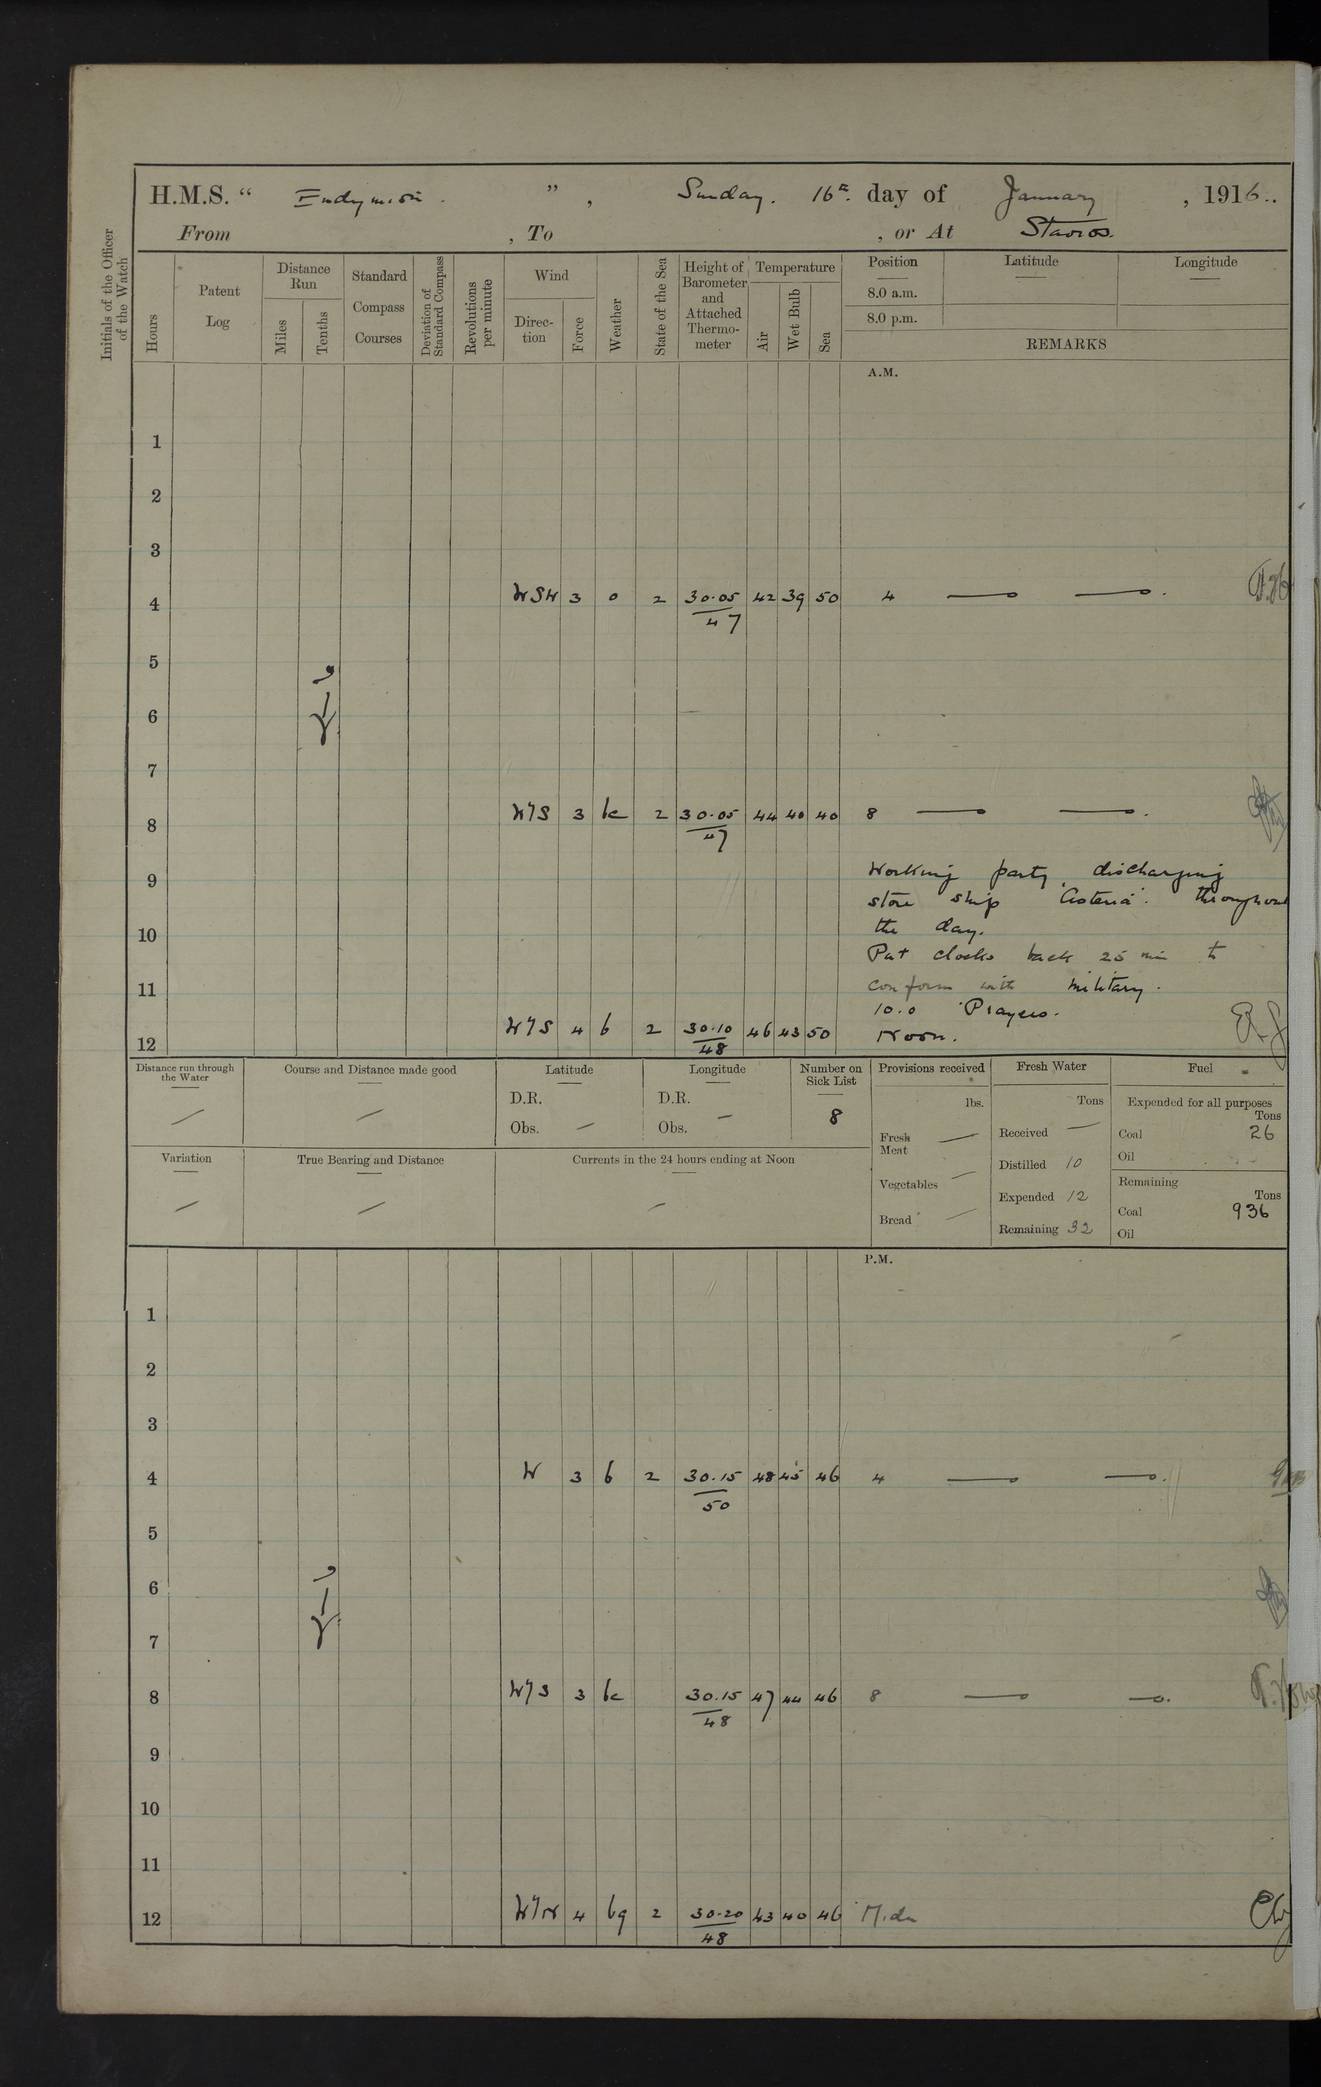 H.M.S. “ Endymion. ” , Sunday. 16th. day of January , 1916..
From , To , or At Stavros.
Initials of the Officer of the Watch
Hours
Patent Log
Distance Run
Miles
Tenths
Standard Compass Courses
Deviation of Standard Compass
Revolutions per minute
Wind
Direction
Force
Weather
State of the Sea
Height of Barometer and Attached Thermometer
Temperature
Air
Wet Bulb
Sea
Position Latitude Longitude
8.0 a.m.
8.0 p.m.
REMARKS
A.M.
1
2
3
4 WSW 3 o 2 30.05 42 39 50 4 — — .
47
5
6
7
8 W/S 3 bc 2 30.05 44 40 40 8 — — .
47
9 Working party discharging
store ship "Asteria". throughout
10 the day.
Put clocks back 25 min to
11 conform with military.
10.0 Prayers.
12 W/S 4 b 2 30.10 46 43 50 Noon.
48
Distance run through the Water
—
Course and Distance made good
—
Latitude
D.R.
Obs. —
Longitude
D.R.
Obs. —
Number on Sick List
8
Provisions received
lbs.
Fresh Meat —
Vegetables —
Bread —
Fresh Water
Tons
Received —
Distilled 10
Expended 12
Remaining 32
Fuel
Expended for all purposes
Tons
Coal 26
Oil
Remaining
Tons
Coal 936
Oil
Variation
—
True Bearing and Distance
—
Currents in the 24 hours ending at Noon
—
P.M.
1
2
3
4 W 3 b 2 30.15 48 45 46 4 — — .
50
5
6
7
8 W/S 3 bc 30.15 47 44 46 8 — — .
48
9
10
11
12 W/N 4 bq 2 30.20 43 40 46 Midn
48